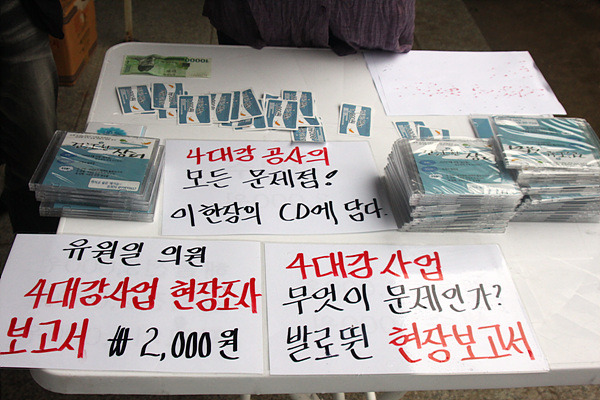 4대강 공사의
모든 문제점!
이 한장의 CD에 담다.
유원일 의원
4대강사업 현장조사
보고서 ₩2,000원
4대강사업
무엇이 문제인가?
발로뛴 현장보고서